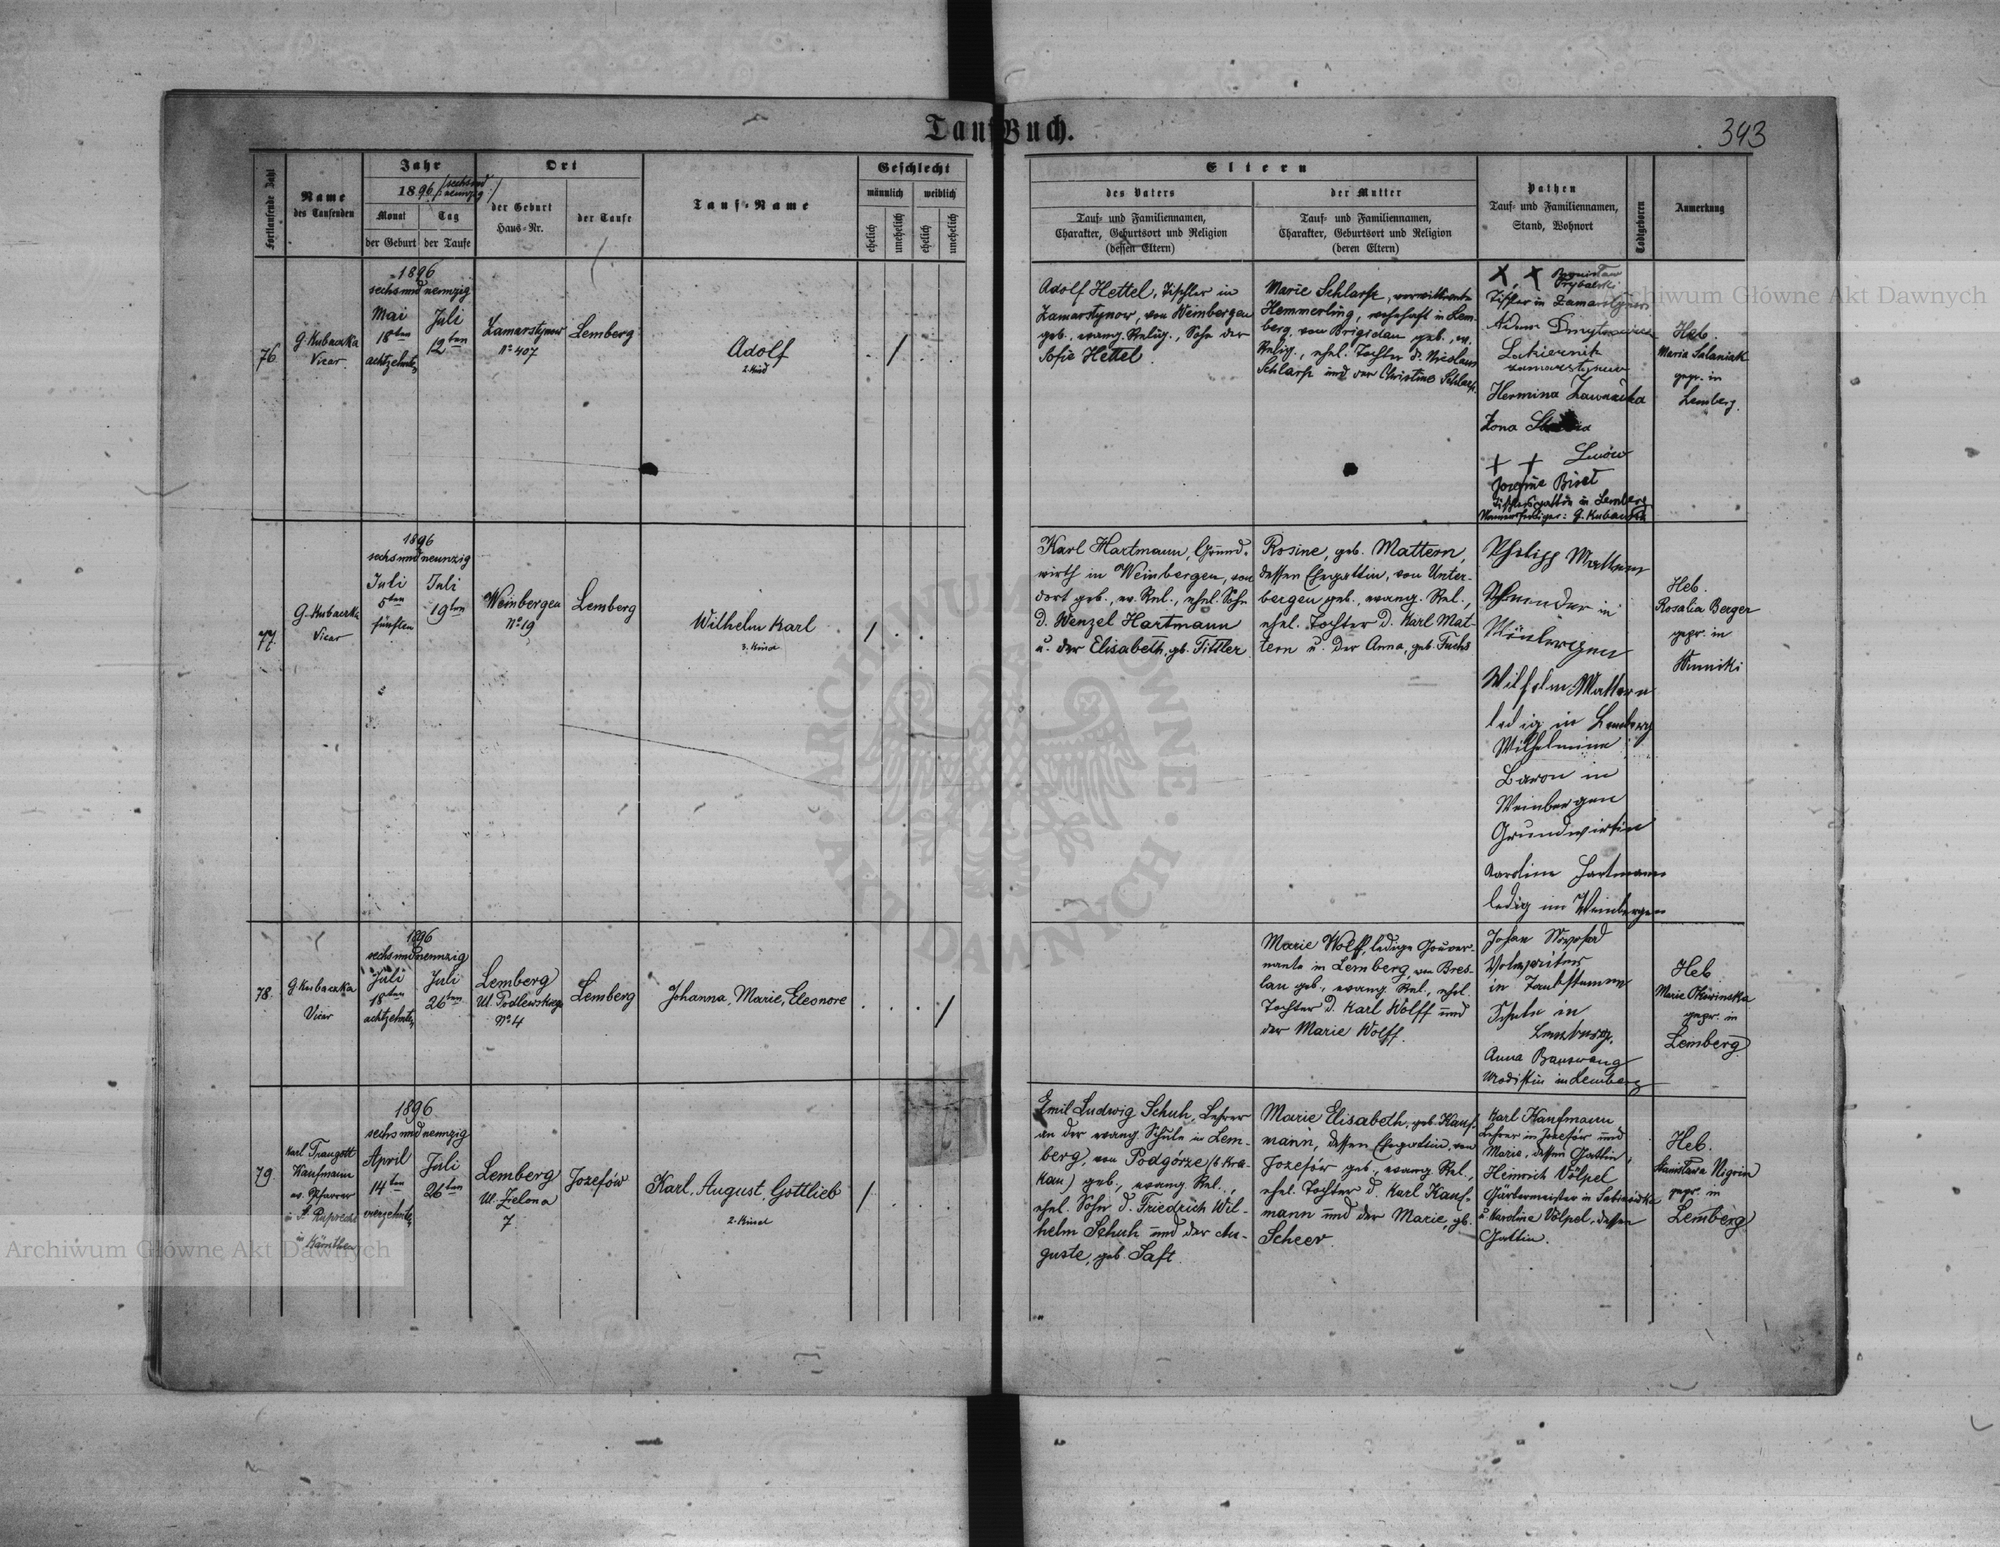 Tauf-Buch.
343
Fortlaufende Zahl
Name
des Taufenden
Jahr
1896 (sechsund
neunzig)
Monat
Tag
der Geburt
der Taufe
Ort
der Geburt
Haus-Nr.
der Taufe
Tauf-Name
Geschlecht
männlich
weiblich
ehelich
unehelich
ehelich
unehelich
Eltern
des Vaters
Tauf- und Familiennamen,
Charakter, Geburtsort und Religion
(dessen Eltern)
der Mutter
Tauf- und Familiennamen,
Charakter, Geburtsort und Religion
(deren Eltern)
Pathen
Tauf- und Familiennamen,
Stand, Wohnort
Todtgeboren
Anmerkung
76.
G. Kubaczka
Vicar.
1896
sechsundneunzig
Mai
18ten
achtzehnten
Juli
12ten
Zamarstynow
No 407
Lemberg
Adolf
2. Kind
Adolf Hettel, Tischler in
Zamarstynow, von Weinbergen
geb., evang. Relig., Sohn der
Sofie Hettel.
Marie Schlarp, verwittwete
Hemmerling, wohnhaft in Lem-
berg, von Brigidau geb., ev.
Relig., ehel. Tochter d. Nicolaus
Schlarp und der Christine Schlarp.
Tischler in Zamarstynow
Adam
zamarstynow
Hermina
Żona
Lwów
Tischlersgattin in Lemberg
G. Kubaczka
Heb.
Maria Salaniak
gepr. in
Lemberg.
77.
G. Kubaczka
Vicar
1896
sechsundneunzig
Juli
5ten
fünften
Juli
19ten
Weinbergen
No 19
Lemberg
Wilhelm Karl
3. Kind
Karl Hartmann, Grund-
wirth in Weinbergen, von
dort geb., ev. Rel., ehel. Sohn
d. Wenzel Hartmann
u. der Elisabeth, gb. Tittler.
Rosine, geb. Mattern,
dessen Ehegattin, von Unter-
bergen geb., evang. Rel.,
ehel. Tochter d. Karl Mat-
tern u. der Anna, geb. Fuchs
Philipp Mattern
in
Wilhelm Mattern
ledig in Lemberg
Wilhelmine
Baron in
Weinbergen
Grundwirtin
Karoline Hartmann
ledig in Weinbergen
Heb.
Rosalia Berger
gepr. in
Winniki
78.
G. Kubaczka
Vicar
1896
sechsundneunzig
Juli
18ten
achtzehnten
Juli
26ten
Lemberg
Ul. Podlewskiego
No 4
Lemberg
Johanna, Marie, Eleonore
Marie Wolff, ledige Gouver-
nante in Lemberg, von Bres-
lau geb., evang. Rel., ehel.
Tochter d. Karl Wolff und
der Marie Wolff.
Johan
in Taubstummen
Schule in
Lemberg.
Anna
Modistin in Lemberg
Heb.
Marie
gepr. in
Lemberg
79.
Karl Traugott
Kaufmann
ev. Pfarrer
in St. Ruprecht
in Kärnthen
1896
sechsundneunzig
April
14ten
vierzehnten
Juli
26ten
Lemberg
Ul. Zielona
7
Jozefów
Karl, August, Gottlieb
2. Kind
Emil Ludwig Schuh, Lehrer
an der evang. Schule in Lem-
berg, von Podgórze (b. Kra-
kau) geb., evang. Rel.,
ehel. Sohn d. Friedrich Wil-
helm Schuh und der Au-
guste, geb. Saft.
Marie Elisabeth, geb. Kauf-
mann, dessen Ehegattin, von
Jozefów geb., evang. Rel.,
ehel. Tochter d. Karl Kauf-
mann und der Marie, gb.
Scheer.
Karl Kaufmann,
Lehrer in Jozefów und
Marie, dessen Gattin,
Heinrich Völpel
Gärtnermeister in
u. Karoline Völpel, dessen
Gattin.
Heb.
Stanisława Nigrin
gepr. in
Lemberg
Archiwum Główne Akt Dawnych
Archiwum Główne Akt Dawnych
ARCHIWUM GŁÓWNE AKT DAWNYCH